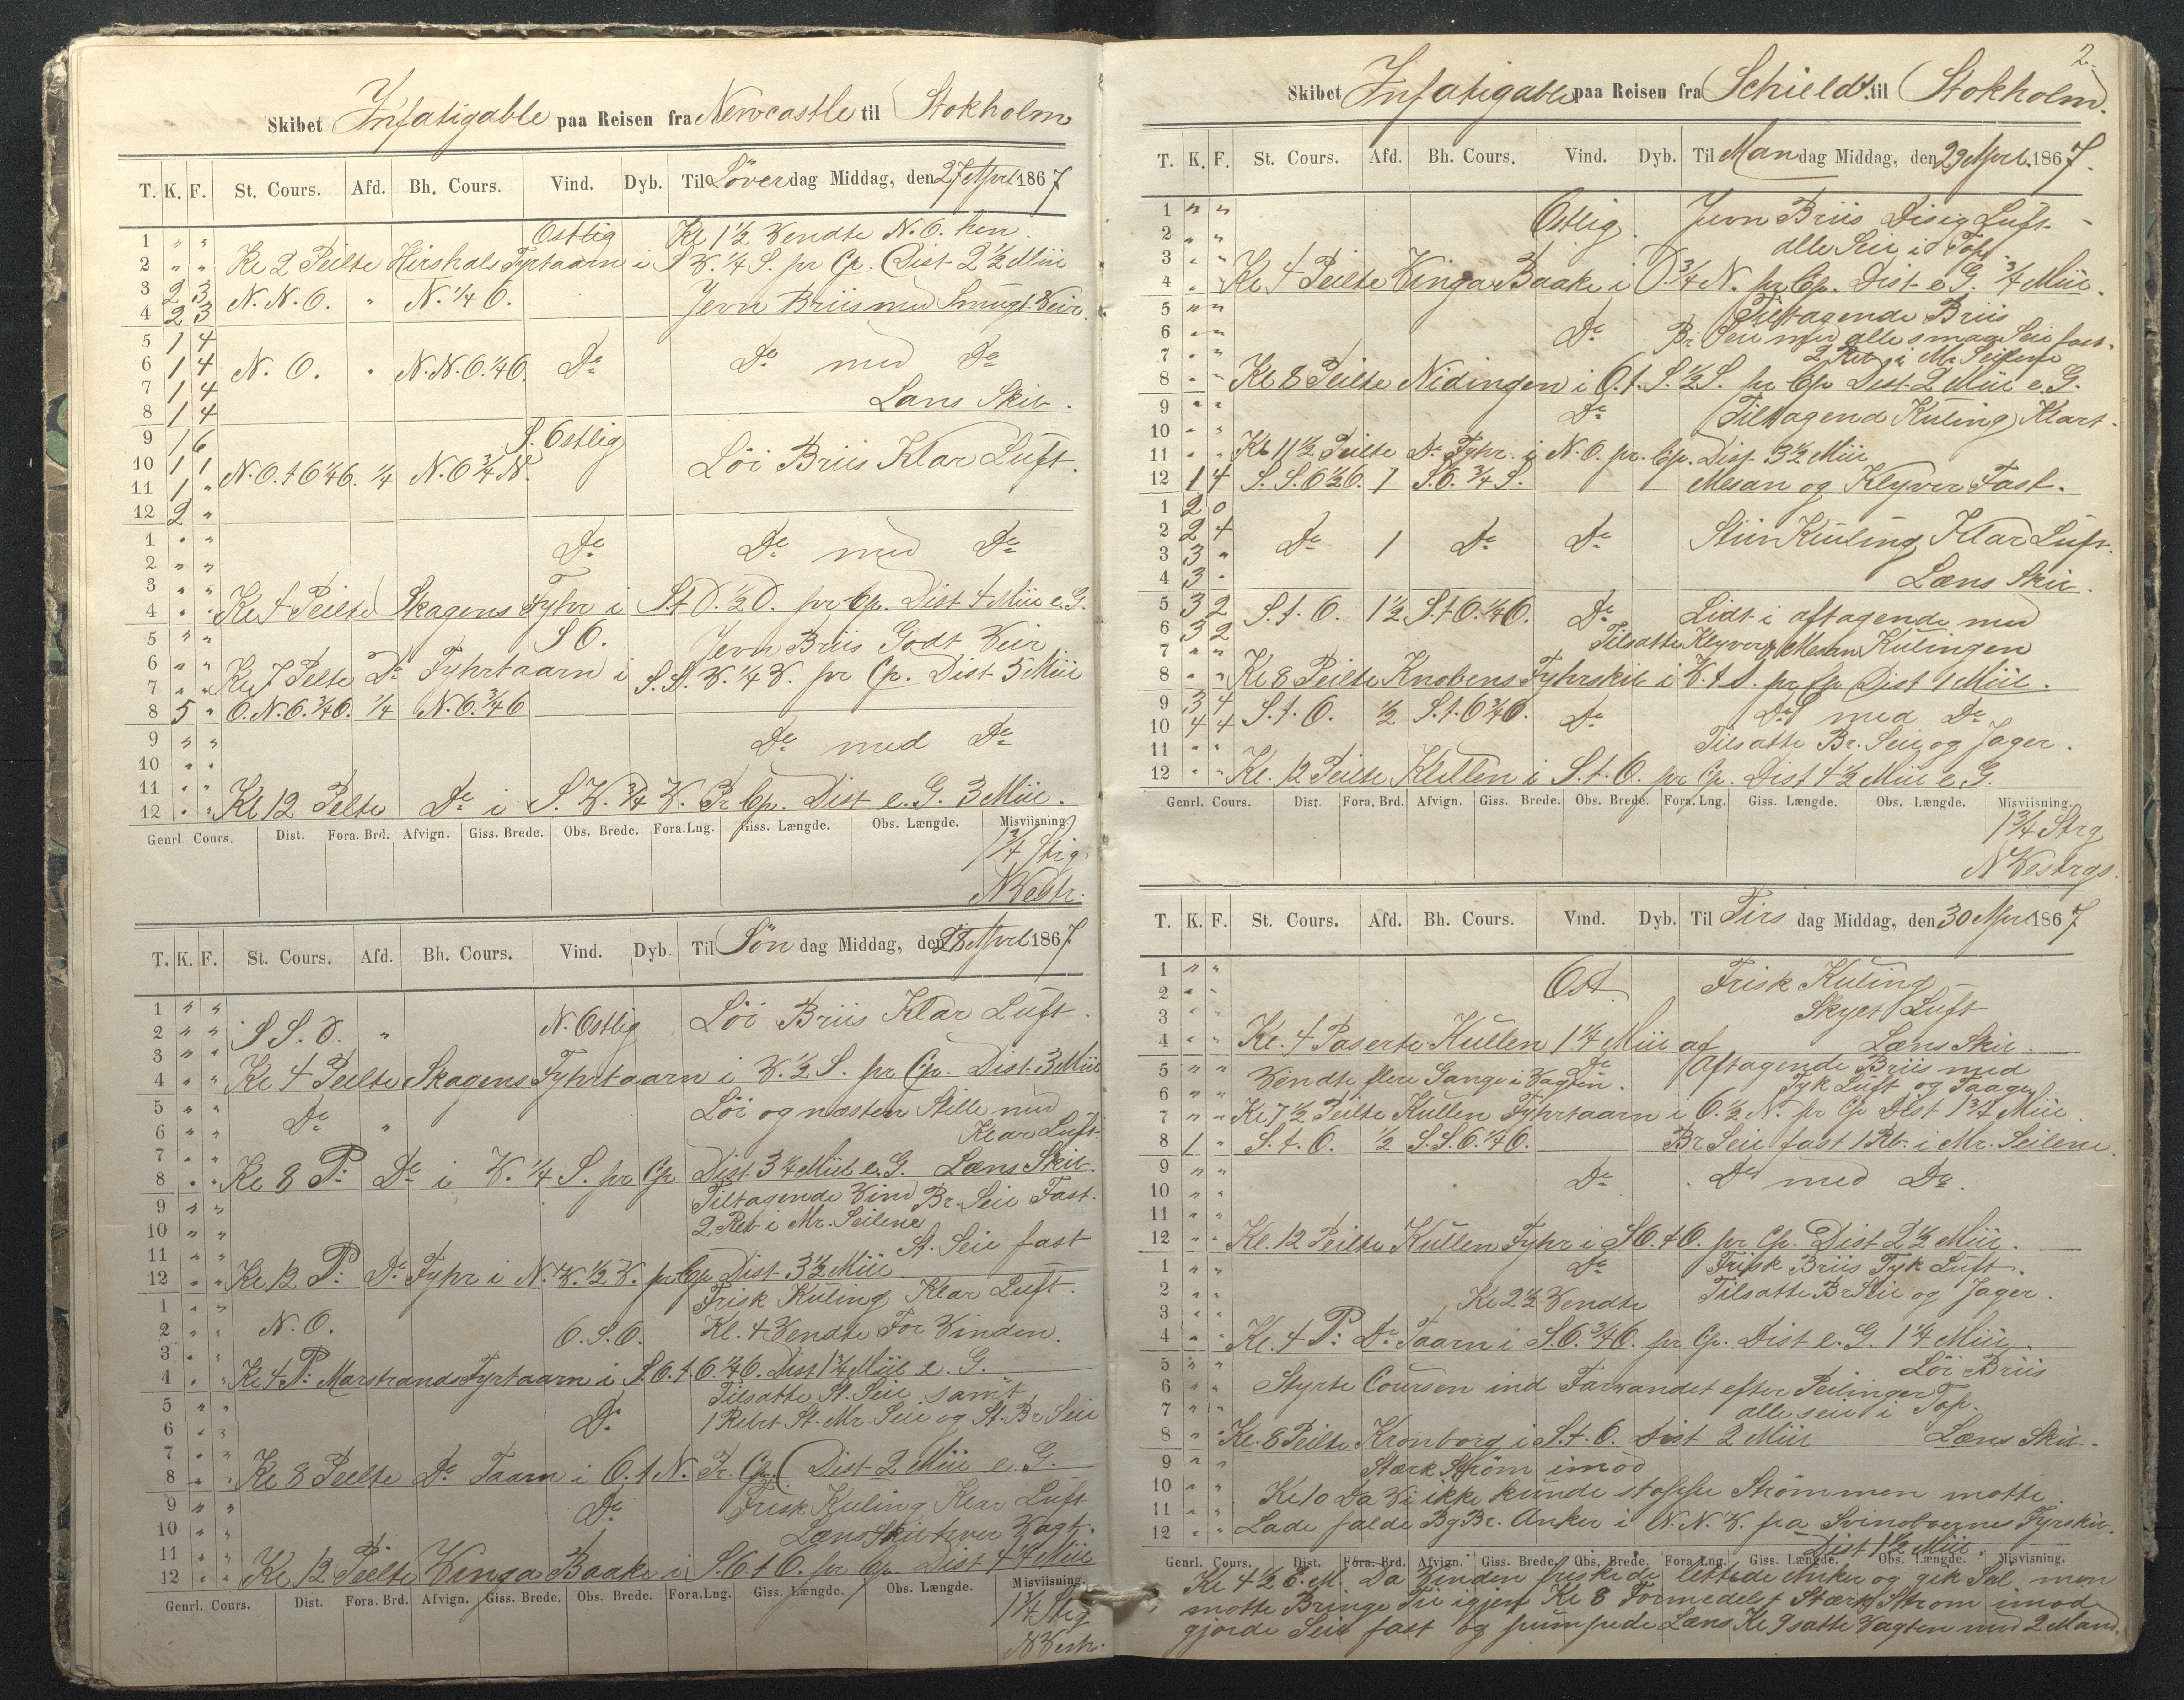 Skibet Infatigable paa Reisen fra Newcastle til Stokholm
T. K. F. St. Cours. Afd. Bh. Cours. Vind. Dyb. Til Løverdag Middag, den 27 April 1867
1 " " Ostlig Kl 1½ Vendte N.O. hen.
2 " " Kl 2 Peilte Hirshals Fyrtaarn i S.V.¼S. pr Cp. Dist 2½ Miil
3 2 3 N.N.O. " N.¼O.
4 2 3 Jevn Briis med Smugt Veir.
5 1 4
6 1 4 N.O. " N.N.O.¼O. Do Do med Do
7 1 4
8 1 4 Lans Skib.
9 1 6 S. Ostlig
10 1 1 N.O.t.O¼O. ¼ N.O¾N. Löi Briis Klar Luft.
11 1 "
12 2 "
1 " " Do Do med Do
2 " "
3 " "
4 " " Kl 4 Peilte Skagens Fyhr i S.t.V.½V. pr Cp. Dist 4 Miil e.G.
5 " " S O. Jevn Briis Godt Veir
6 " "
7 " " Kl 7 Pelte Do Fyhrtaarn i S.S.V.¼V. pr Cp. Dist 5 Miil
8 5 " O.N.O.¾O. ¼ N.O.¾O
9 " " Do med Do
10 " "
11 " "
12 " " Kl 12 Pelte Do i S.V.¾V. Pr Cp. Dist e.G. 3 Miil.
Genrl Cours. Dist. Fora. Brd. Afvign. Giss. Brede. Obs. Brede. Fora.Lng. Giss. Længde. Obs. Længde. Misviisning.
1¾ Strig.
N Vestr.
T. K. F. St. Cours. Afd. Bh. Cours. Vind. Dyb. Til Søn dag Middag, den 28 April 1867
1 " " Löi Briis Klar Luft.
2 " " S S.O. " N. Ostlig
3 " "
4 " " Kl 4 Peilte Skagens Fyhrtaarn i V.½S. pr Cp. Dist 3 Miil
5 " " Do " Löi og næsten Stille med
6 " " Klar Luft.
7 " "
8 " " Kl 8 P: Do i V.¼S. pr Cp Dist 3¼ Miil e.G. Læns Skib.
9 " " Tiltagende Vind Br. Seil Fast.
10 " " 2 Reb i Mr. Seilene
11 " " St. Seil fast
12 " " Kl 12 P: Do Fyhr i N.V.½V. pr Cp Dist 3½ Miil
1 " " Frisk Kuling Klar Luft.
2 " " N.O. O.S.O. Kl. 4 Vendte For Vinden.
3 " "
4 " " Kl 4 P: Marstrands Fyrtaarn i S.O.t.O.¼O. Dist 1¾ Miil e.G.
5 " " Tilsatte St. Seil samt
6 " " Do 1 Rebt St. Mr. Seil og St. Br Seil
7 " "
8 " " Kl 8 Peilte Do Taarn i O.t.N. Pr. Cp. Dist 2 Miil e.G.
9 " " Do Frisk Kuling Klar Luft
10 " " Læns Skib hver Vagt.
11 " "
12 " " Kl 12 Peilte Vinga Baake i S.O.t.O. pr Cp. Dist 4¼ Miil
Genrl. Cours. Dist. Fora. Brd. Afvign. Giss. Brede. Obs. Brede. Fora.Lng. Giss. Længde. Obs. Længde. Misviisning.
1¼ Strig
N Vestr.
2.
Skibet Infatigable paa Reisen fra Schieldt. til Stokholm.
T. K. F. St. Cours. Afd. Bh. Cours. Vind. Dyb. Til Mandag Middag, den 29 April 1867.
1 " " Ostlig. Jevn Briis Disig Luft
2 " " alle Seil i Top.
3 " "
4 " " Kl 4 Peilte Vinga Baake i O.¾N. pr Cp. Dist e.G. ¾ Miil.
5 " " Tiltagende Briis
6 " " Do Br Seil med alle smaa Seil fast.
7 " " 2 Reb i Mr Seilene
8 " " Kl 8 Peilte Nidingen i O.t.S.½S. pr Cp Dist 2 Miil e.G.
9 " " Do Tiltagend Kuling Klart.
10 " "
11 " " Kl 11½ Peilte Do Fyhr. i N.O. pr. Cp. Dist 3½ Miil
12 1 4 S.S.O½O. 1 S.O.¾S. Mesan og Klyver Fast.
1 2 0
2 2 4 Do 1 Do Do Stiv Kuling Klar Luft.
3 3 "
4 3 " Læns Skib.
5 3 2 S.t.O. 1½ S.t.O.¼O. Do Lidt i aftagende med
6 3 2 Tilsatte Klyver og Mesan Kulingen
7 " "
8 " " Kl 8 Peilte Knobens Fyhrskib i V.t.S. pr Cp Dist 1 Miil.
9 3 4 S.t.O. ½ S.t.O¾O. Do Do med Do
10 4 4
11 " " Tilsatte Br. Seil og Jager.
12 " " Kl. 12 Peilte Kullen i S.t.O. pr Cp. Dist 4½ Miil e.G.
Genrl. Cours. Dist. Fora. Brd. Afvign. Giss. Brede. Obs. Brede. Fora.Lng. Giss. Længde. Obs. Længde. Misviisning.
1¾ Strg
N Vestrgs.
T. K. F. St. Cours. Afd. Bh. Cours. Vind. Dyb. Til Tirs dag Middag, den 30 April 1867
1 " " Ost Frisk Kuling
2 " " Skyet Luft
3 " "
4 " " Kl. 4 Paserte Kullen 1¼ Miil af Læns Skib.
5 " " Do Aftagende Briis med
6 " " Vendte flere Gange i Vagten. Tyk Luft og Taage
7 " " Kl 7½ Peilte Kullen Fyhrtaarn i O.½N. pr Cp Dist 1¾ Miil.
8 1 " S.t.O. ½ S.S.O.¼O. Br Seil fast 1 Rb. i Mr. Seilene.
9 " " Do Do med Do.
10 " "
11 " "
12 " " Kl. 12 Peilte Kullen Fyhr i S O.t.O. pr Cp. Dist 2½ Miil.
1 " " Do Frisk Briis Tyk Luft.
2 " " Kl 2½ Vendte Tilsatte Br Seil og Jager.
3 " "
4 " " Kl. 4 P: Do Taarn i S.O.¾O. pr Cp. Dist e.G. 1¼ Miil.
5 " " Löi Briis
6 " " Styrte Coursen ind Farvandet efter Peilinger
7 " " alle seil i Top.
8 " " Kl. 8 Peilte Kronborg i S.t.O. Dist 2 Miil Læns Skib.
9 " " Stærk Strøm imod
10 " " Kl 10 Da Vi ikke kunde stoppe Strømmen motte
11 " "
12 " " Lade falde Bg Br. Anker i N.N.V. fra Svinoboernes Fyrskib.
Dist 1½ Miil.
Genrl. Cours. Dist. Fora. Brd. Afvign. Giss. Brede. Obs. Brede. Fora Lng. Giss. Længde. Obs. Længde. Misvisning.
Kl 4½ E.M. Da Vinden friskede lettede Anker og gik Seil men
motte Bringe Til igjen Kl 8 Formedelst Stærk Strøm imod
gjorde Seil fast og pumpede Læns Kl 9 satte Vagten med 2 Mand.